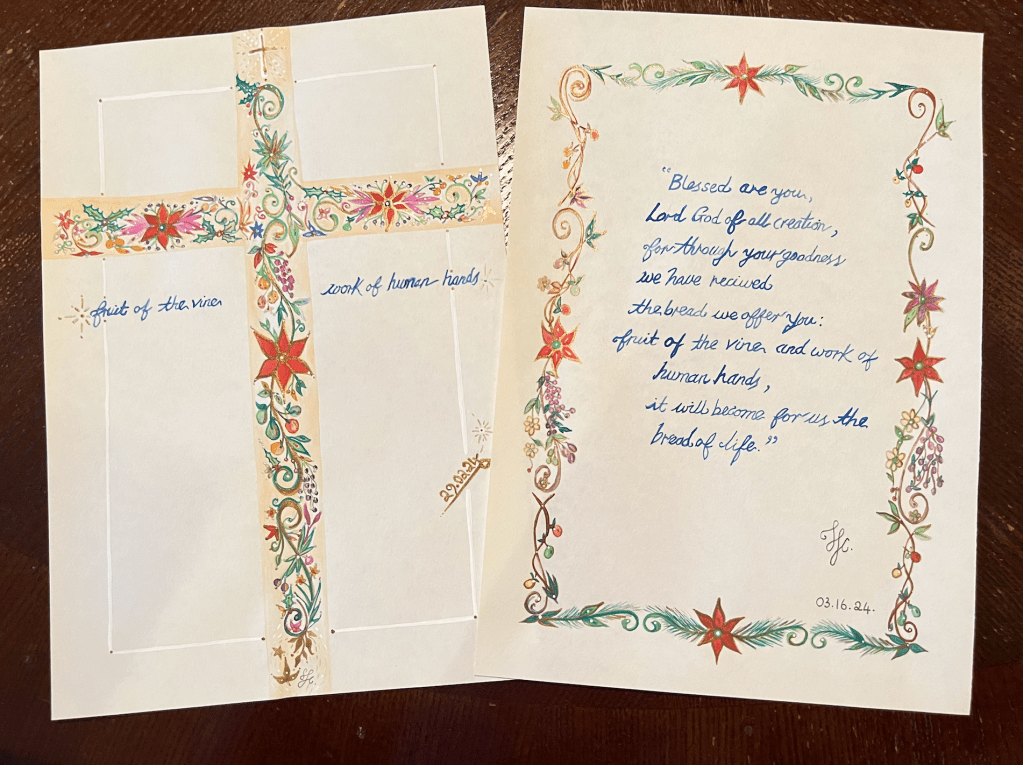 fruit of the vine
work of human hands.
29.02.24
"Blessed are you,
Lord God of all creation,
for through your goodness
we have recived
the bread we offer you:
fruit of the vine and work of
human hands,
it will become for us the
bread of life."
03.16.24.